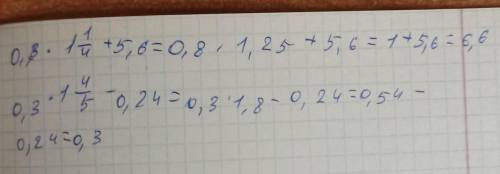 0,8 · 1 1/4 + 5,6 = 0,8 · 1,25 + 5,6 = 1 + 5,6 = 6,6
0,3 · 1 4/5 - 0,24 = 0,3 · 1,8 - 0,24 = 0,54 -
0,24 = 0,3